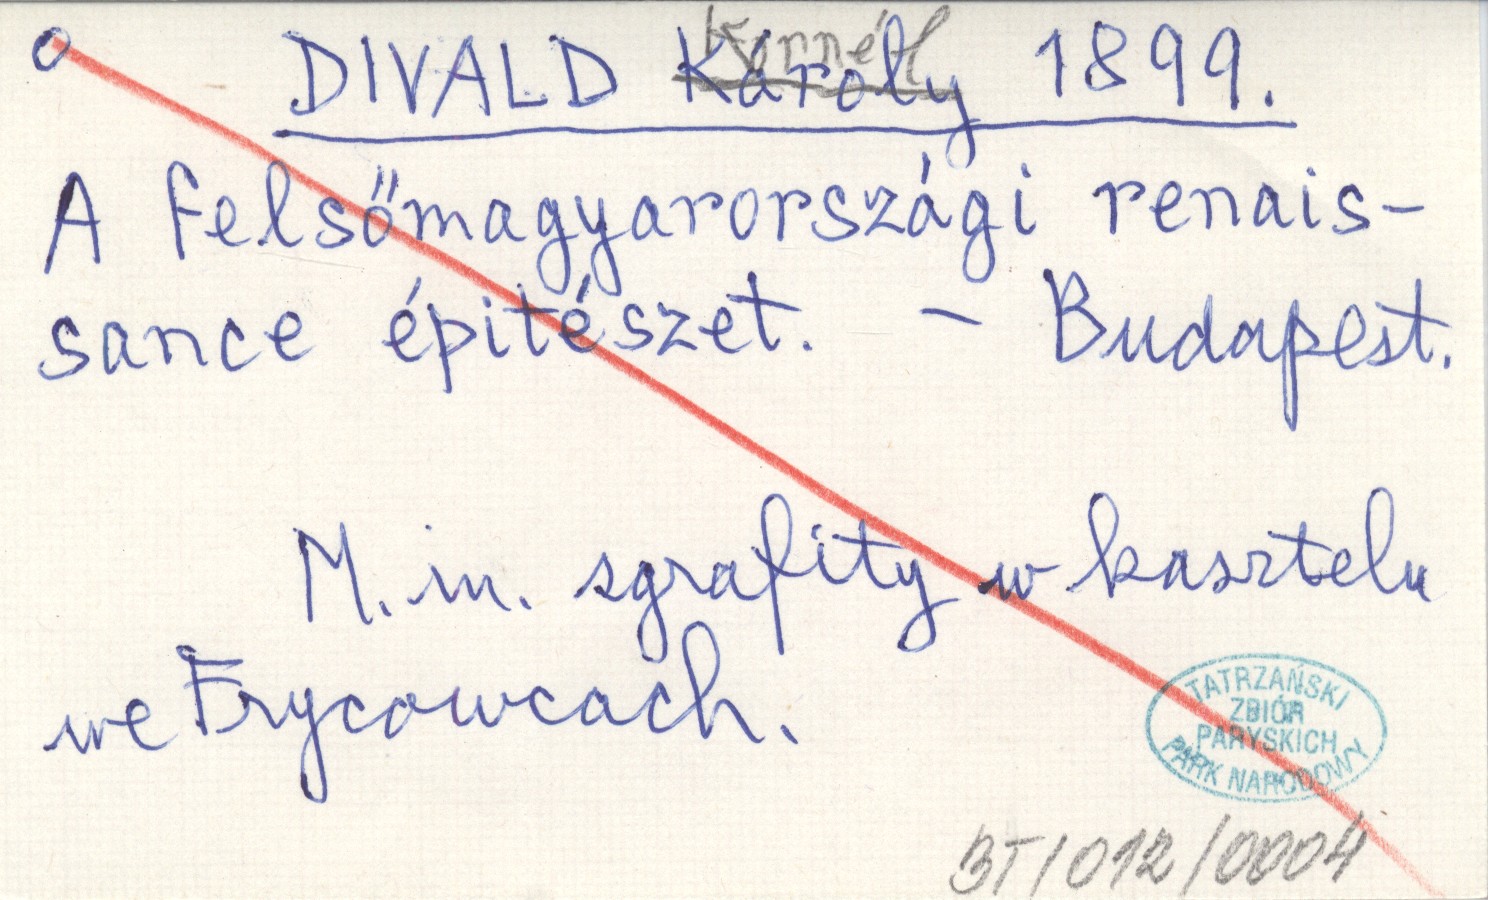 DIVALD Károly Kornél 1899.
A felsőmagyarországi renais-
sance épitészet. – Budapest.
M. in. sgrafity w kasztelu
we Frycowcach.
TATRZAŃSKI
ZBIÓR
PARYSKICH
PARK NARODOWY
BT/012/0004